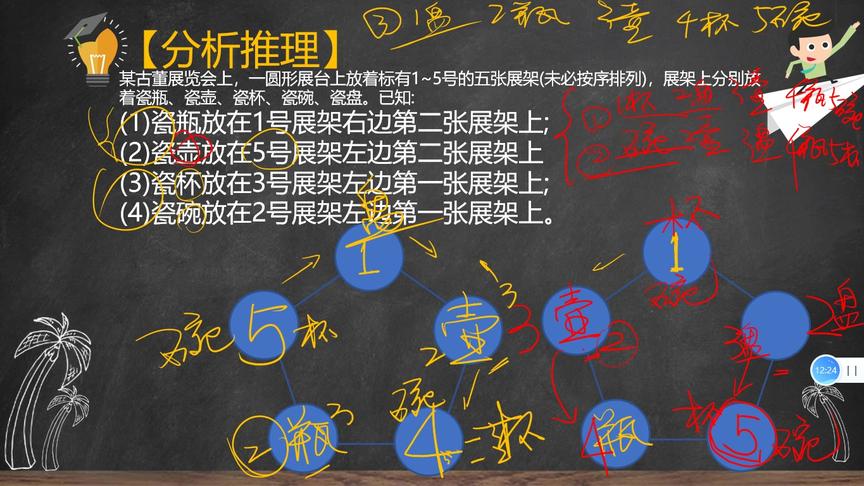 ③ 1盘 2瓶 3壶 4杯 5碗
【分析推理】
某古董展览会上，一圆形展台上放着标有1~5号的五张展架(未必按序排列)，展架上分别放
着瓷瓶、瓷壶、瓷杯、瓷碗、瓷盘。已知:
① 1杯 2盘 3壶 4瓶 5碗
(1)瓷瓶放在1号展架右边第二张展架上;
(2)瓷壶放在5号展架左边第二张展架上
② 碗 2壶
(3)瓷杯放在3号展架左边第一张展架上;
(4)瓷碗放在2号展架左边第一张展架上。
盘
杯
1
1
碗
3
碗 5 杯
2 壶 3
壶 2
2盘
3盘
12:24
碗
杯
② 瓶 3
4 杯
4 瓶
5 碗